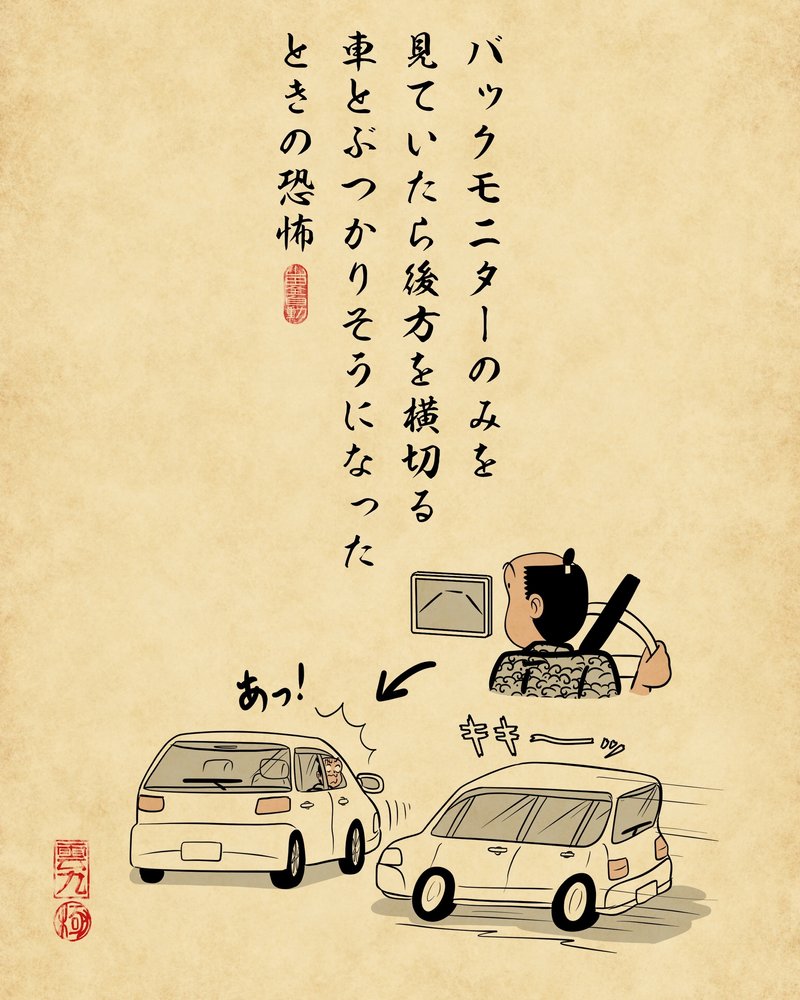 バックモニターのみを
見ていたら後方を横切る
車とぶつかりそうになった
ときの恐怖
あっ!
キキーッ